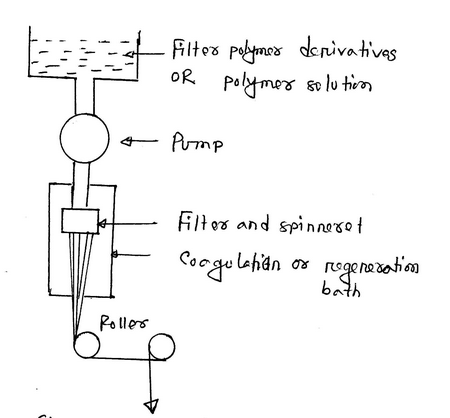 Filter polymer derivatives
OR polymer solution
Pump
Filter and spinneret
Coagulation or regeneration
bath
Roller